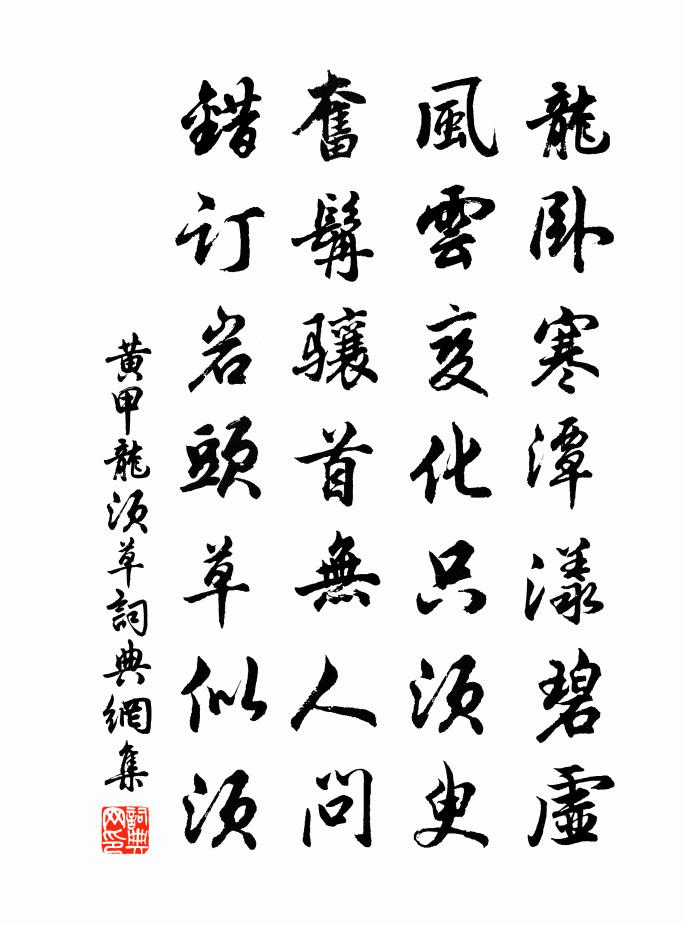 龍卧寒潭漾碧虛
風雲變化只須臾
奮髯驤首無人問
錯訂岩頭草似須
黄甲龍須草詞典網集
詞典網印